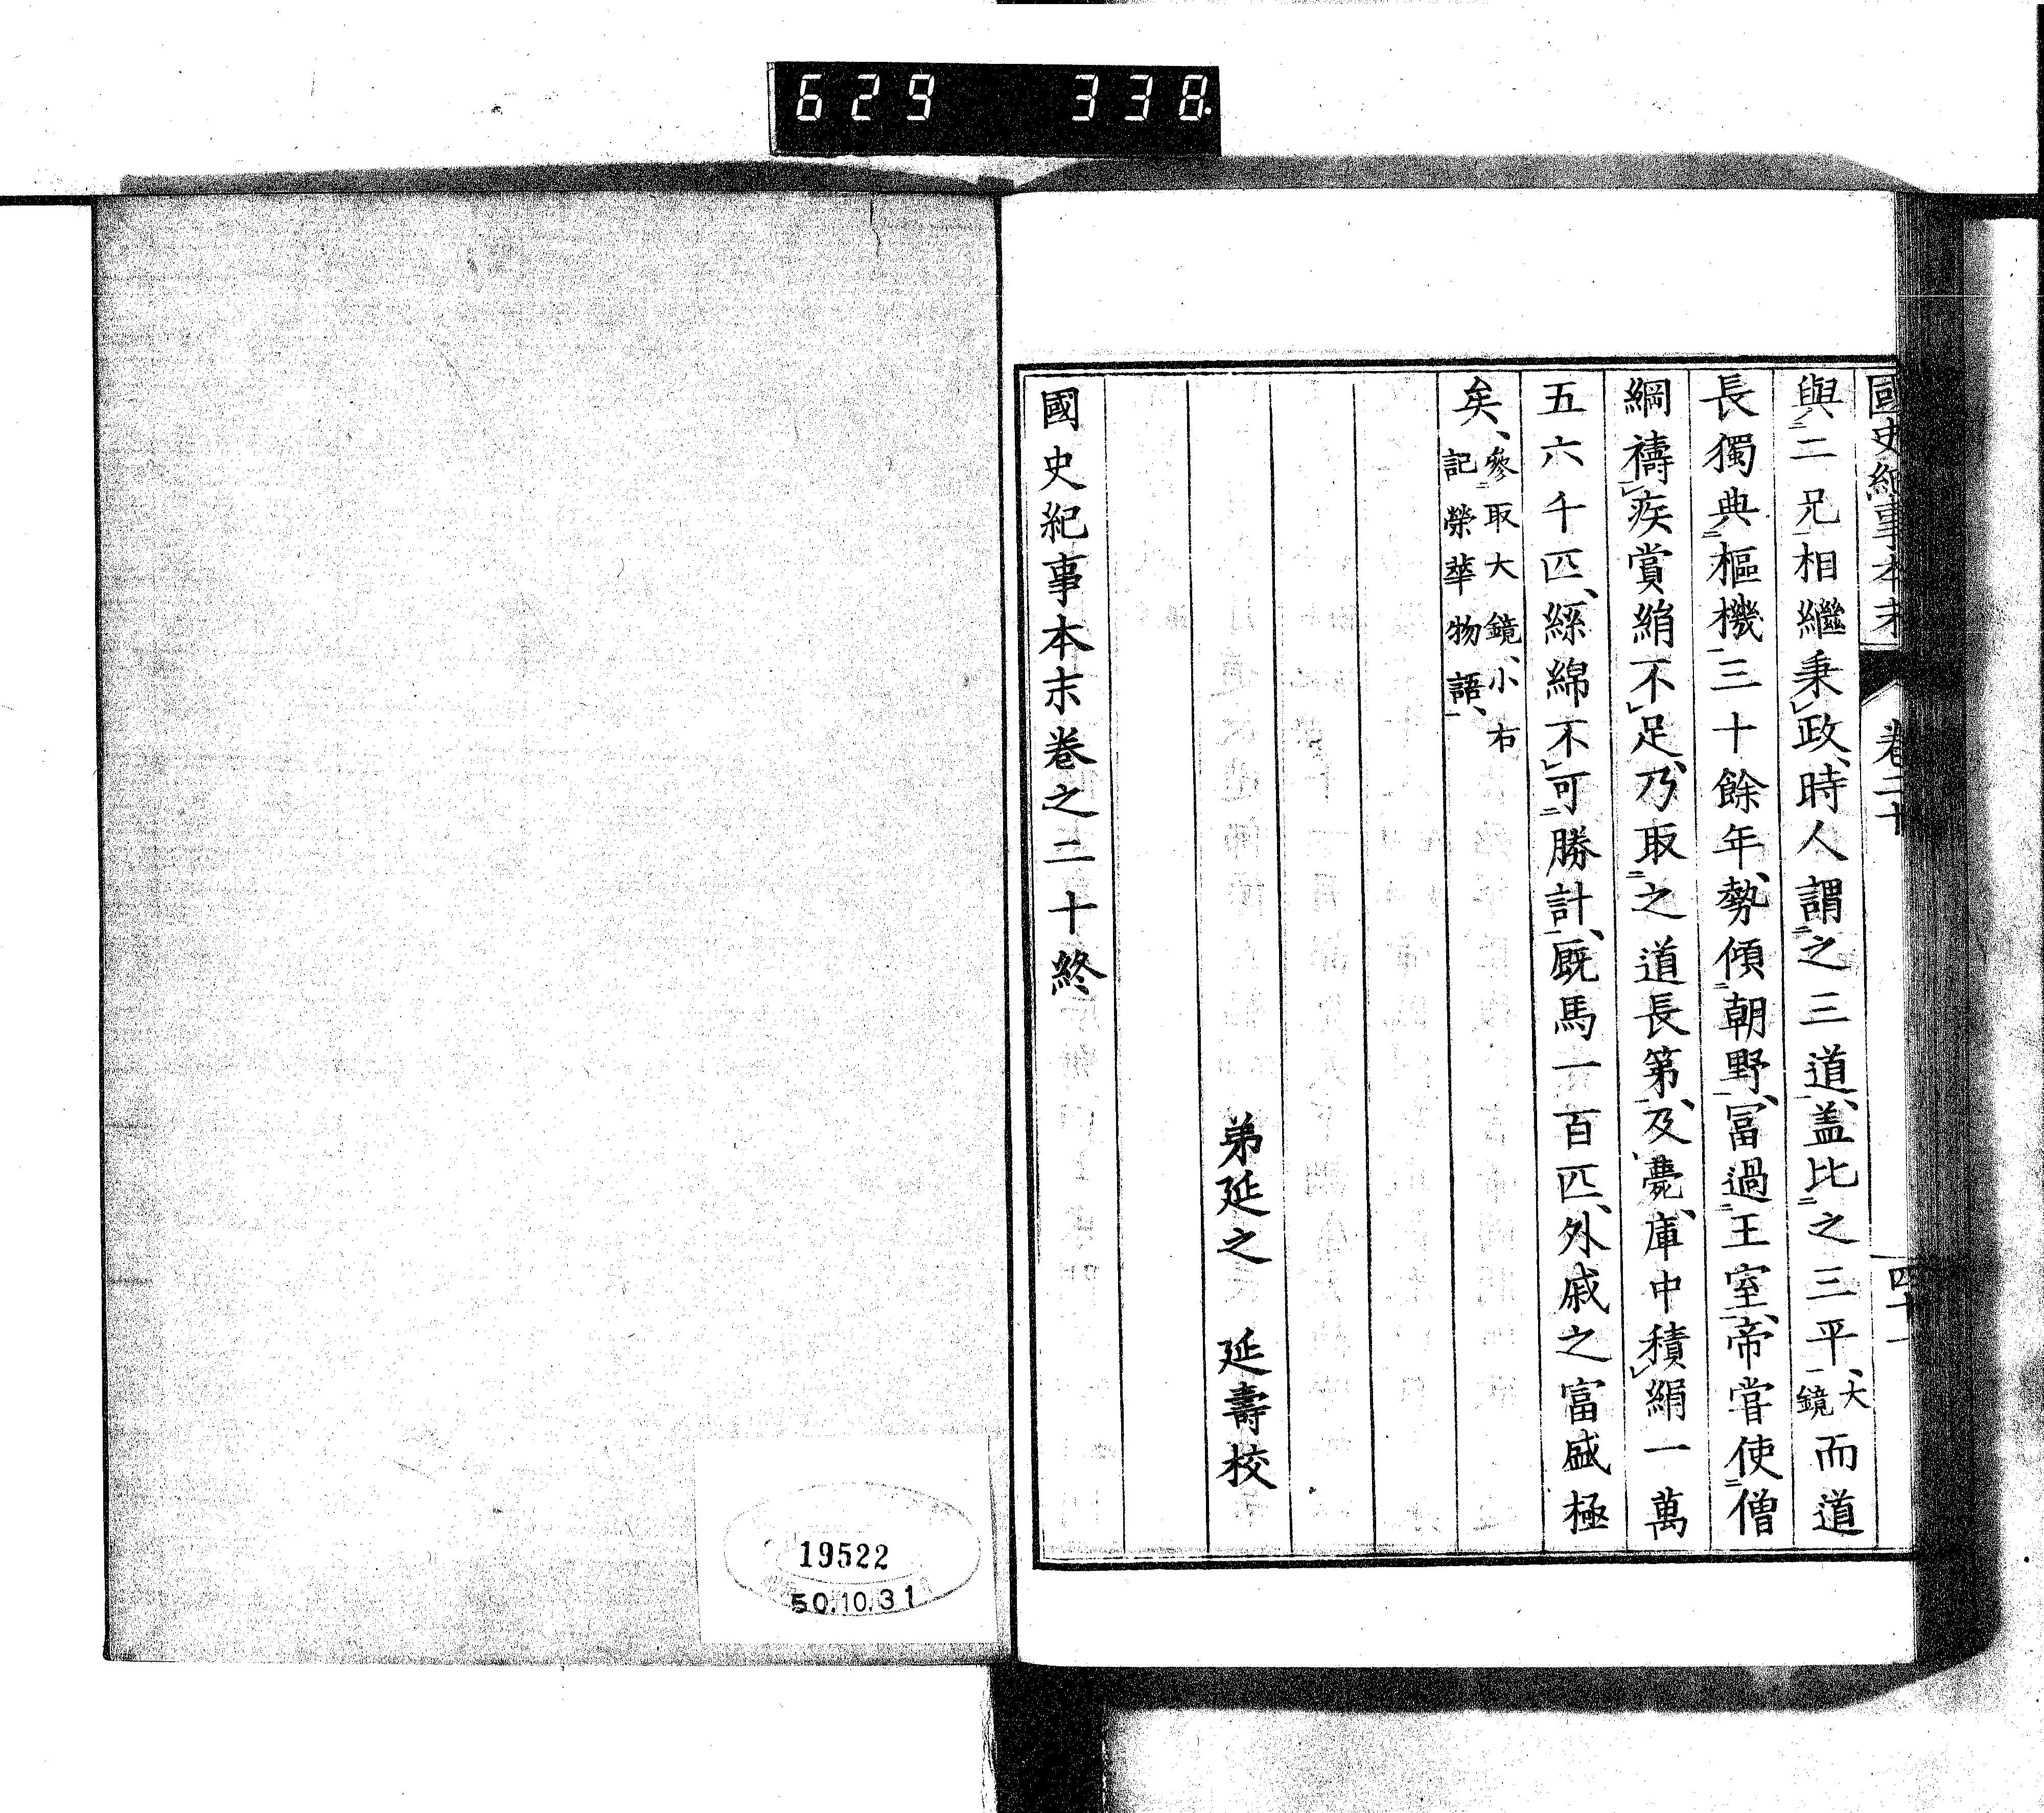 629 338
國史紀事本末 卷二十 四十一
與二兄相繼秉政、時人謂之三道、盖比之三平、大鏡而道
長獨典樞機三十餘年、勢傾朝野、冨過王室、帝甞使僧
綱禱疾賞絹不足、乃取之道長第、及薨、庫中積絹一萬
五六千匹、絲綿不可勝計、厩馬一百匹、外戚之富盛極
矣、參取大鏡、小右記榮華物語、
弟延之 延壽校
國史紀事本末卷之二十終
19522
50.10.31